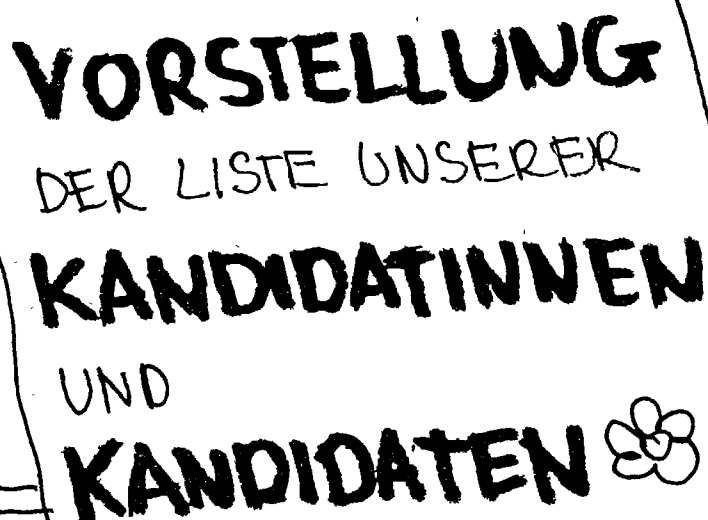 VORSTELLUNG
DER LISTE UNSERER
KANDIDATINNEN
UND
KANDIDATEN